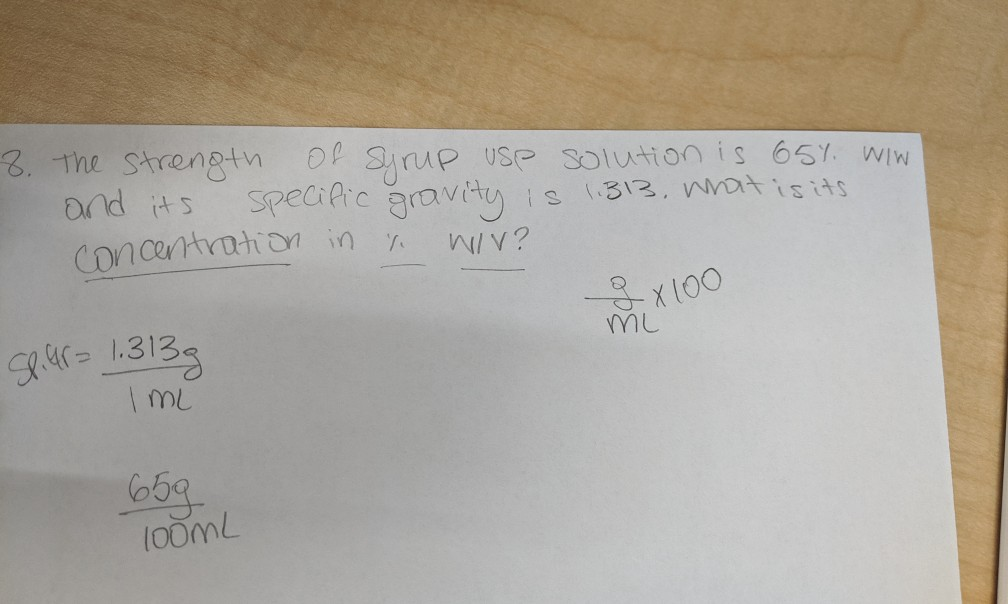 8. The strength of syrup USP solution is 65% W/W
and its specific gravity is 1.313. What is its
concentration in % W/V?
g
mL x100
Sp.Gr= 1.313g
1 mL
65g
100mL